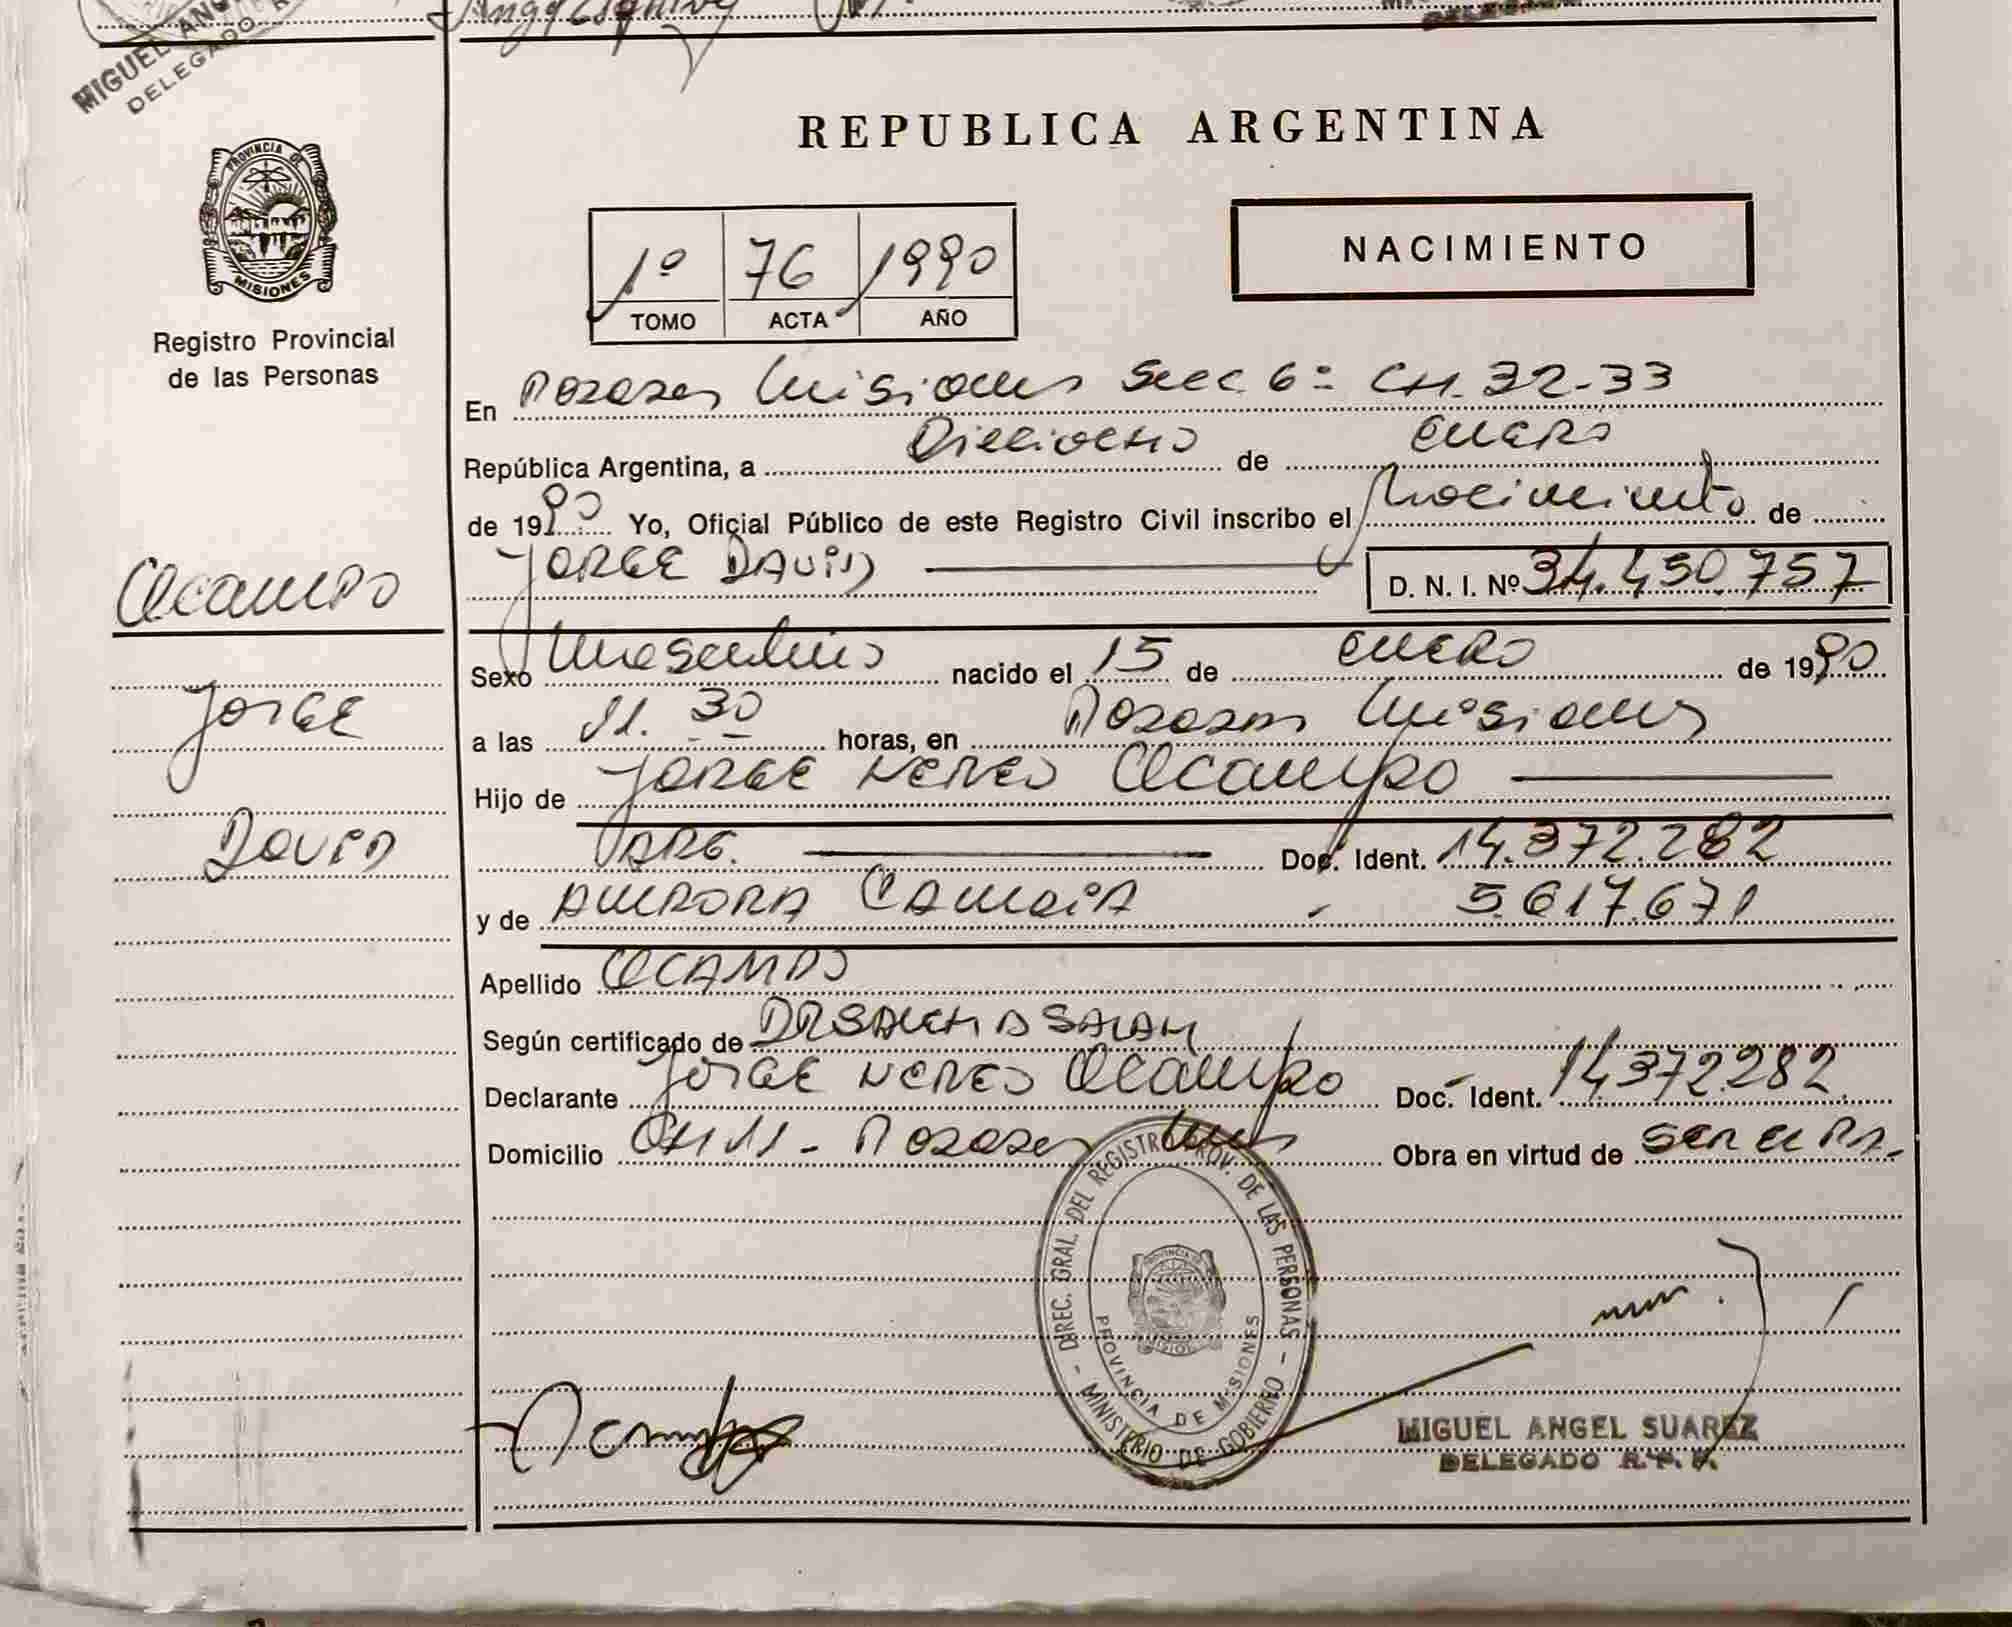 MIGUEL ANG
DELEGADO R
REPUBLICA ARGENTINA
PROVINCIA DE
MISIONES
Registro Provincial
de las Personas
1º 76 1990
TOMO ACTA AÑO
NACIMIENTO
En Posadas Misiones Secc 6º CH. 32-33
República Argentina, a Dieciocho de Enero
de 1990 Yo, Oficial Público de este Registro Civil inscribo el Nacimiento de
JORGE DAVID D. N. I. Nº 34.450.757
Ocampo
Jorge
David
Sexo Masculino nacido el 15 de ENERO de 1990
a las 11.30 horas, en Posadas Misiones
Hijo de JORGE NEREO Ocampo
ARG. Doc. Ident. 14.372.282
y de 5.617.671
Apellido OCAMPO
Según certificado de DR
Declarante JORGE NEREO Ocampo Doc. Ident. 14.372.282
Domicilio CH 11 - Posadas Mnes Obra en virtud de
DIREC. GRAL. DEL REGISTRO PROV. DE LAS PERSONAS - MINISTERIO DE GOBIERNO -
PROVINCIA DE MISIONES
MIGUEL ANGEL SUAREZ
DELEGADO R.P.P.